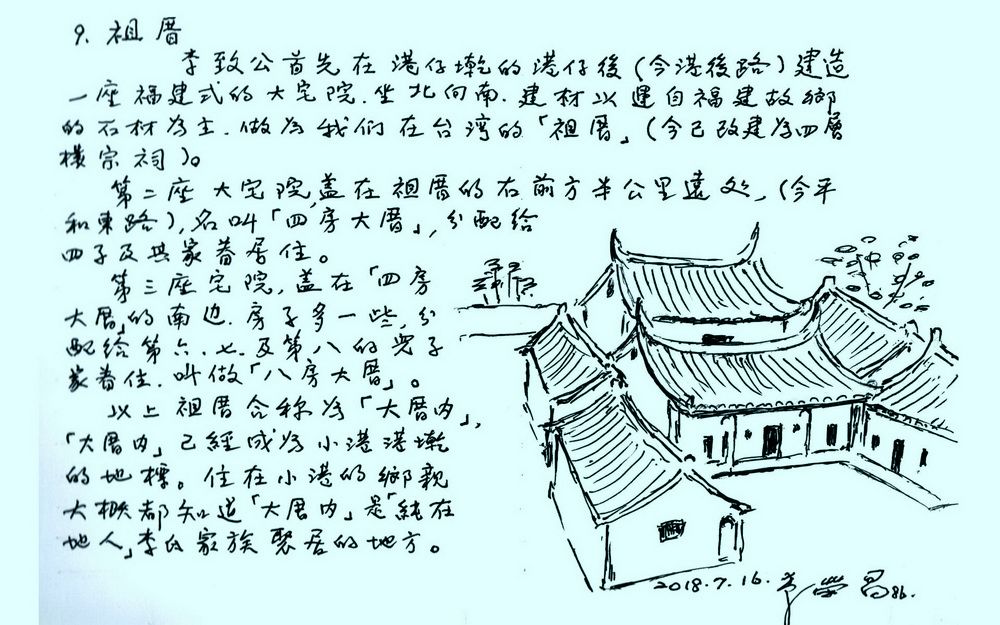 9. 祖厝
李致公首先在港仔墘的港仔後(今港後路)建造
一座福建式的大宅院.坐北向南.建材以運自福建故鄉
的石材為主.做為我們在台湾的「祖厝」(今已改建為四層
樓宗祠)。
第二座大宅院,盖在祖厝的右前方半公里遠处,(今平
和東路),名叫「四房大厝」,分配給
四子及其家眷居住。
第三座宅院,盖在「四房
大厝」的南边.房子多一些,分
配給第六.七.及第八的兒子
家眷住.叫做「八房大厝」。
以上祖厝合称為「大厝内」,
「大厝内」已經成為小港港墘
的地標。住在小港的鄉親
大概都知道「大厝内」是「純在
地人」李氏家族聚居的地方。
2018.7.16.李學昌86.